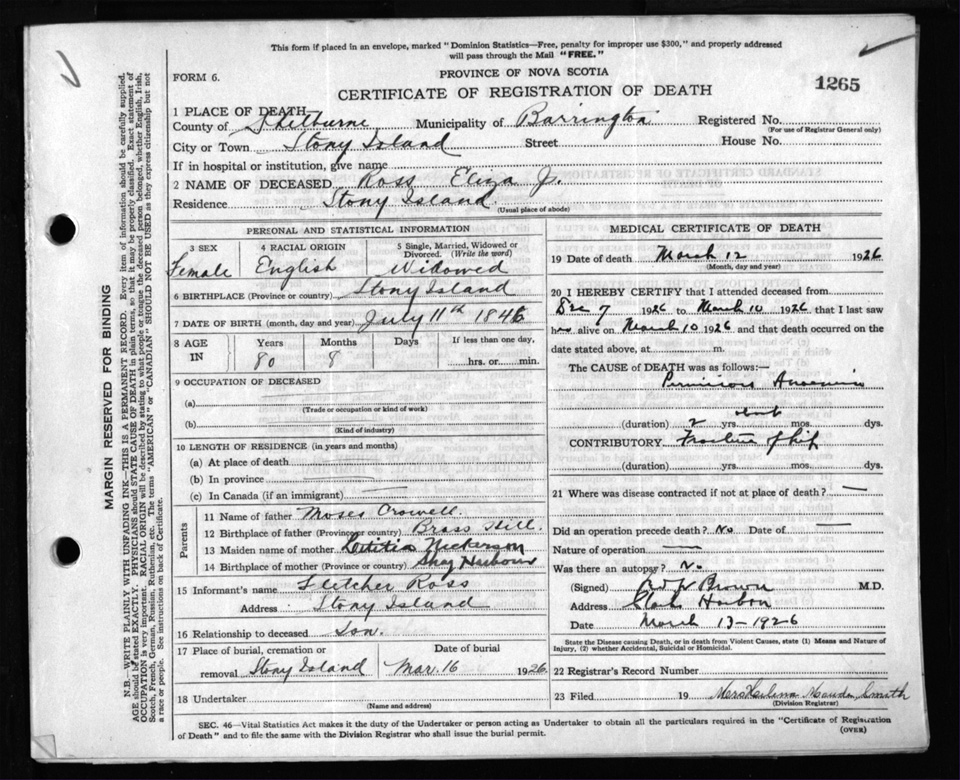 This form if placed in an envelope, marked "Dominion Statistics—Free, penalty for improper use $300," and properly addressed
will pass through the Mail "FREE."
FORM 6.
PROVINCE OF NOVA SCOTIA
CERTIFICATE OF REGISTRATION OF DEATH
1265
1 PLACE OF DEATH
County of Shelburne Municipality of Barrington Registered No.
(For use of Registrar General only)
City or Town Stony Island Street House No.
If in hospital or institution, give name
2 NAME OF DECEASED Ross Eliza J.
Residence Stony Island
(Usual place of abode)
PERSONAL AND STATISTICAL INFORMATION
3 SEX Female
4 RACIAL ORIGIN English
5 Single, Married, Widowed or Divorced. (Write the word) Widowed
6 BIRTHPLACE (Province or country) Stony Island
7 DATE OF BIRTH (month, day and year) July 11th 1846
8 AGE IN Years 80 Months 8 Days If less than one day, hrs. or min.
9 OCCUPATION OF DECEASED
(a)
(Trade or occupation or kind of work)
(b)
(Kind of industry)
10 LENGTH OF RESIDENCE (in years and months)
(a) At place of death
(b) In province
(c) In Canada (if an immigrant)
Parents
11 Name of father Moses Crowell
12 Birthplace of father (Province or country) Brass Hill.
13 Maiden name of mother Letitia Nickerson
14 Birthplace of mother (Province or country) Shag Harbour
15 Informant's name Fletcher Ross
Address Stony Island
16 Relationship to deceased Son.
17 Place of burial, cremation or removal Stony Island
Date of burial Mar. 16 1926
18 Undertaker
(Name and address)
MEDICAL CERTIFICATE OF DEATH
19 Date of death March 12 1926
(Month, day and year)
20 I HEREBY CERTIFY that I attended deceased from
Dec 7 1926 to March 10 1926 that I last saw
her alive on March 10 1926 and that death occurred on
date stated above, at m.
The CAUSE of DEATH was as follows:—
Pernicious Anaemia
(duration) 2 yrs. mos. dys.
CONTRIBUTORY Fracture of hip
(duration) yrs. mos. dys.
21 Where was disease contracted if not at place of death? —
Did an operation precede death? No Date of —
Nature of operation —
Was there an autopsy? No
(Signed) Brown M.D.
Address Clarks Harbor
Date March 13-1926
State the Disease causing Death, or in death from Violent Causes, state (1) Means and Nature of
Injury, (2) whether Accidental, Suicidal or Homicidal.
22 Registrar's Record Number
23 Filed 19 Smith
(Division Registrar)
SEC. 46—Vital Statistics Act makes it the duty of the Undertaker or person acting as Undertaker to obtain all the particulars required in the "Certificate of Registration
of Death" and to file the same with the Division Registrar who shall issue the burial permit.
(OVER)
MARGIN RESERVED FOR BINDING
N.B.—WRITE PLAINLY WITH UNFADING INK—THIS IS A PERMANENT RECORD. Every item of information should be carefully supplied.
AGE should be stated EXACTLY. PHYSICIANS should STATE CAUSE OF DEATH in plain terms, so that it may be properly classified. Exact statement of
OCCUPATION is very important. RACIAL ORIGIN will be described by stating to what people or tongue the deceased person belonged, whether English, Irish,
Scotch, French, German, Russian, Ruthenian, etc. The terms "AMERICAN" or "CANADIAN" SHOULD NOT BE USED as they express citizenship but not
a race or people. See instructions on back of Certificate.